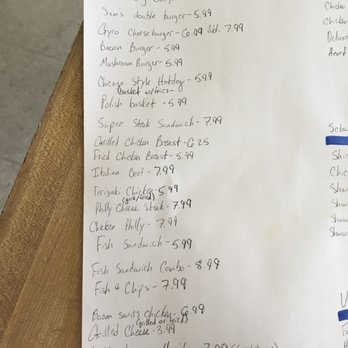 Sam's double burger - 5.99
Gyro Cheeseburger - 6.99 Dbl. 7.99
Bacon Burger - 5.99
Mushroom Burger - 5.99
Chicago Style Hotdog - 5.99
basket w/fries -
Polish basket - 5.99
Super Steak Sandwich - 7.99
Grilled Chicken Breast - 6.25
Fried Chicken Breast - 5.99
Italian Beef - 7.99
Teriyaki Chicken 5.99
(grill/fried)
Philly Cheese Steak - 7.99
Chicken Philly - 7.99
Fish Sandwich - 5.99
Fish Sandwich Combo - 8.99
Fish & Chips - 7.99
Bacon Swiss chicken - 6.99
(Grilled or fried)
Grilled Cheese - 3.99
Chicken
Chicken
Deluxe